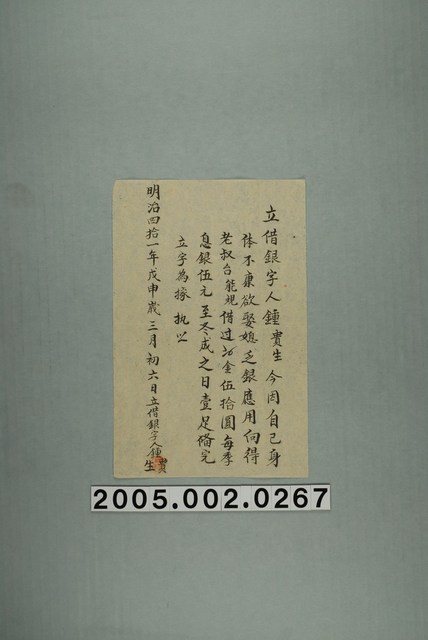 立借銀字人鍾貴生今因自己身
体不康欲娶媳乏銀應用向得
老叔台能規借过金伍拾圓每季
息銀伍元至冬成之日壹足俻完
立字為㨿执炤
明治四拾一年戊申歲三月初六日立借銀字人鍾貴生
2005.002.0267